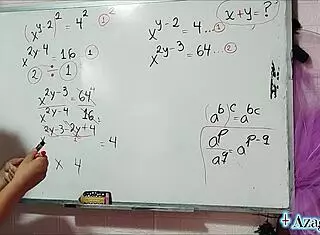 (x^{y-2})^2 = 4^2 ①^2
x^{2y-4} = 16 ①
② ÷ ①
x^{2y-3} = 64
x^{2y-4} 16
x^{2y-3-2y+4} = 4
x 4
x^{y-2} = 4 ... ①
x^{2y-3} = 64 ... ②
x+y=?
(a^b)^c = a^{bc}
a^p / a^q = a^{p-q}
+ Azag